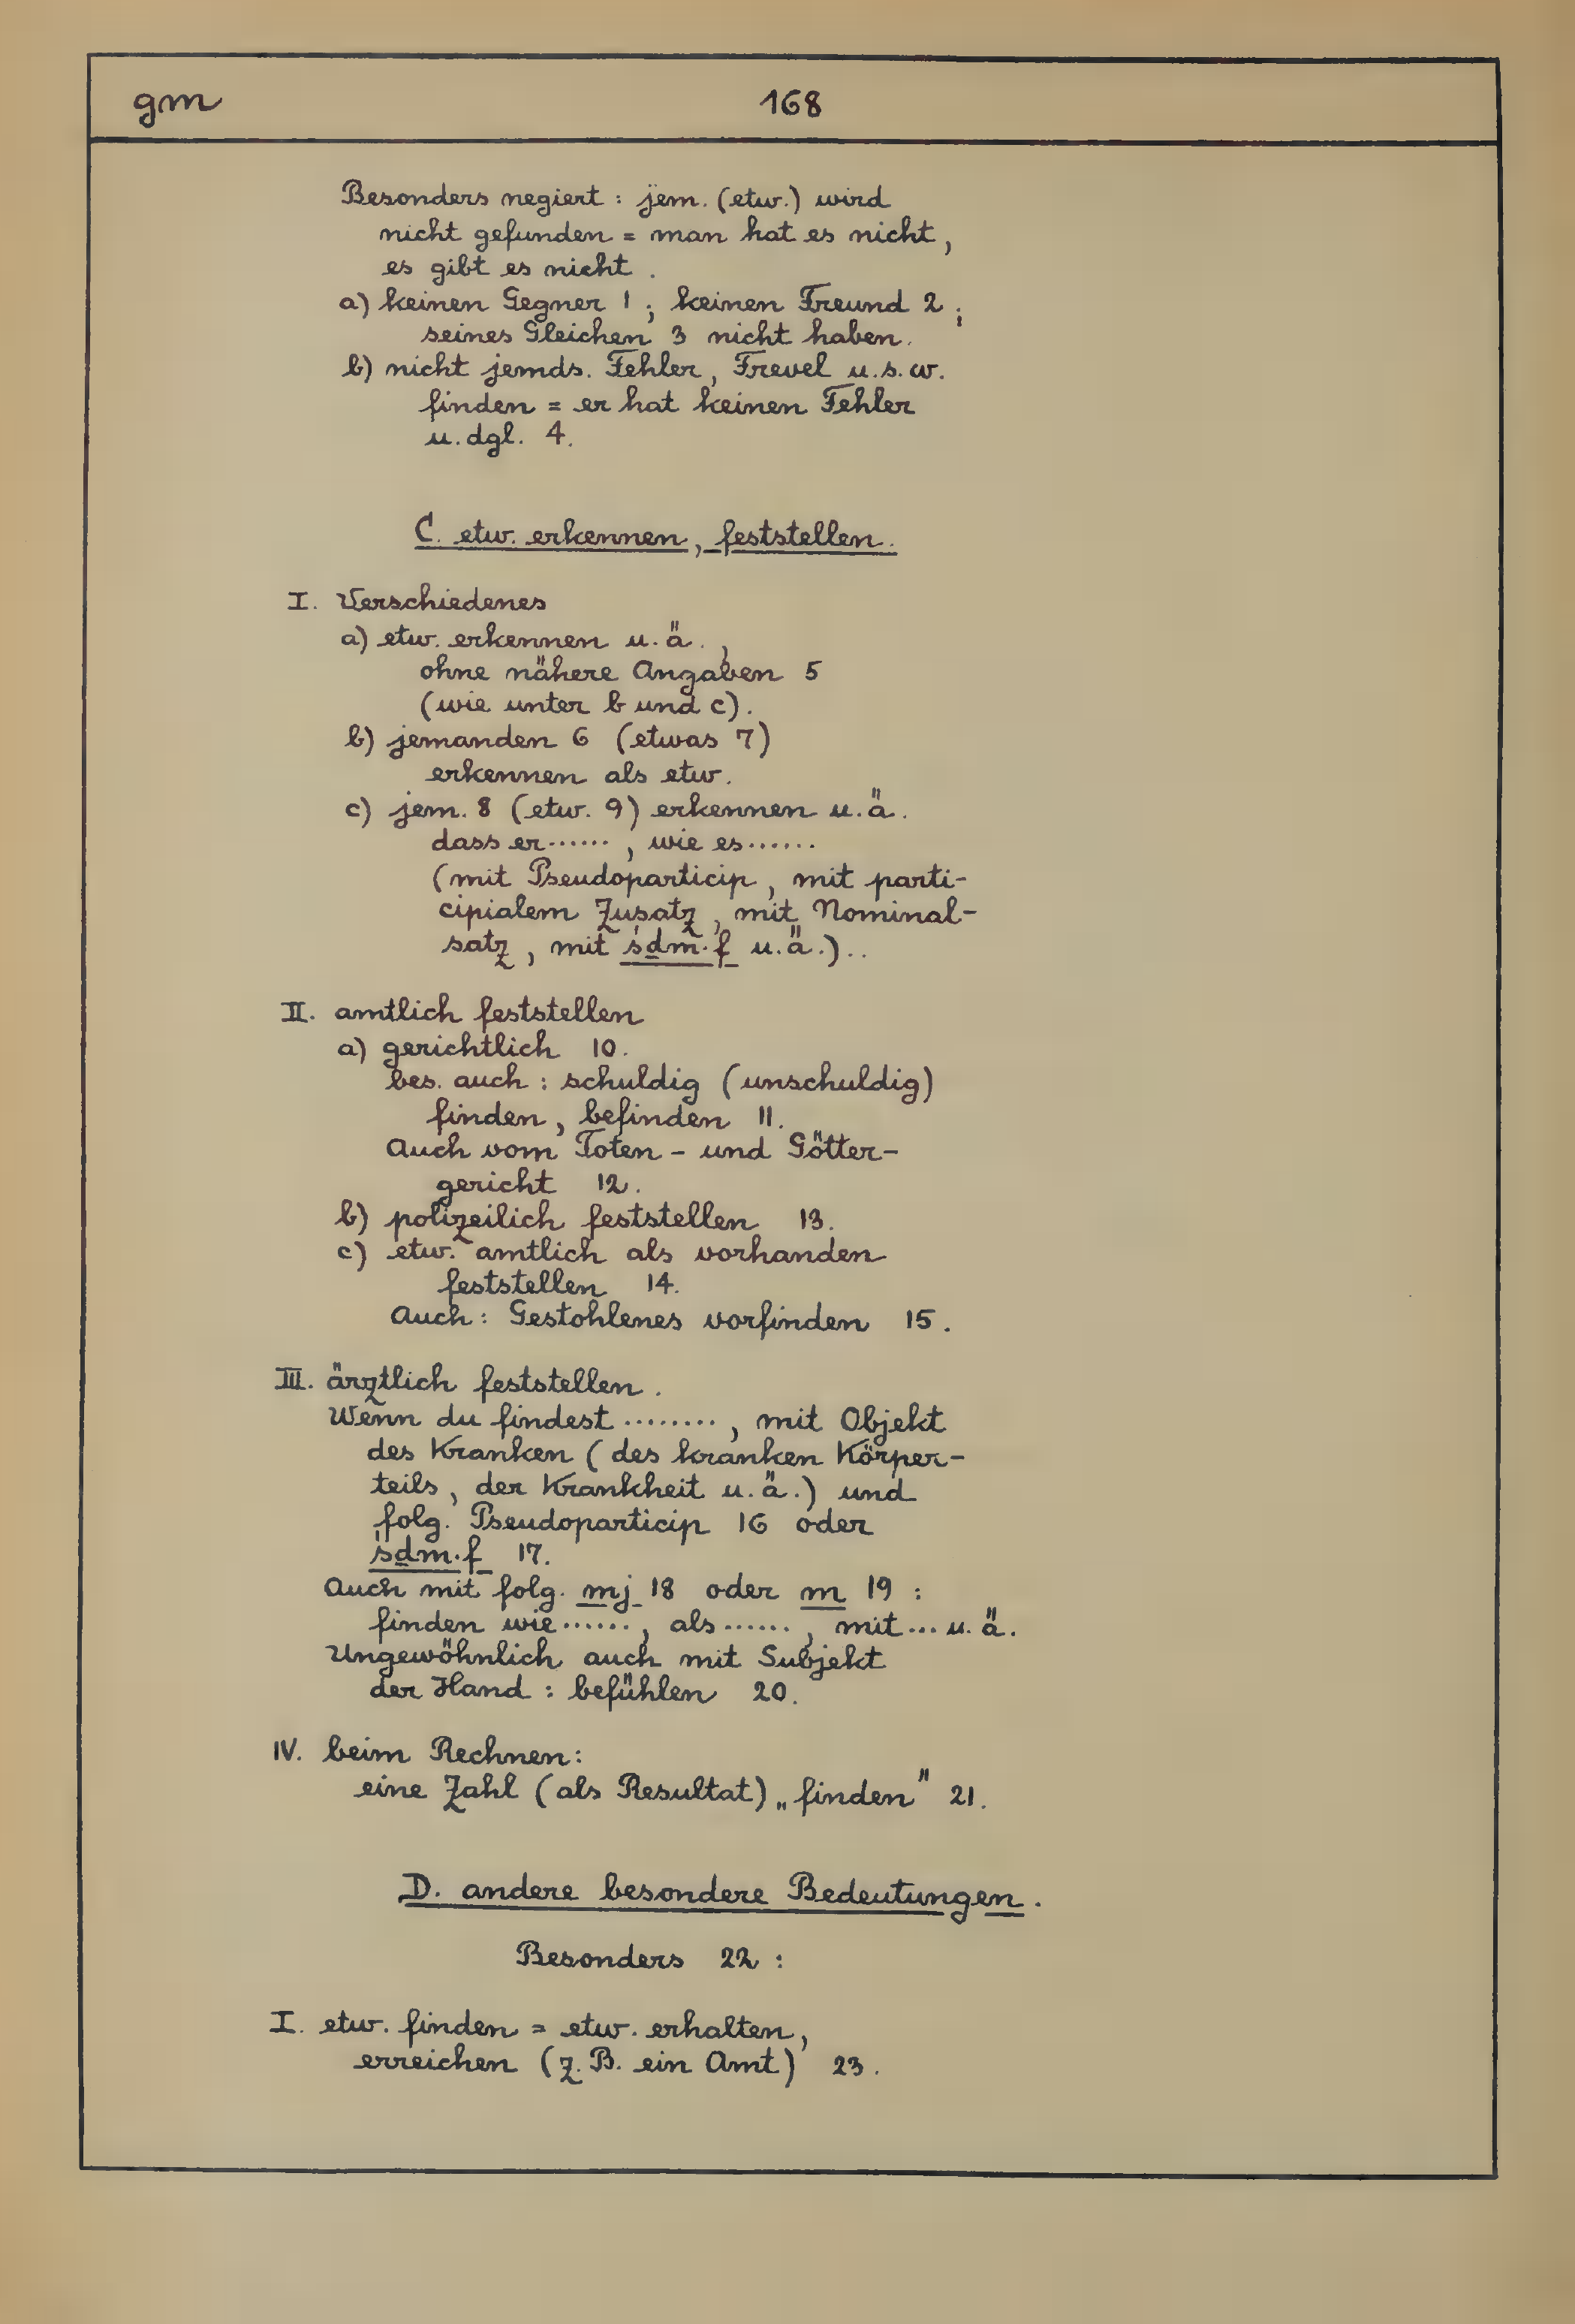 gm 168
Besonders negiert : jem. (etw.) wird
nicht gefunden = man hat es nicht,
es gibt es nicht .
a) keinen Gegner 1 ; keinen Freund 2 ;
seines Gleichen 3 nicht haben.
b) nicht jemds. Fehler, Frevel u.s.w.
finden = er hat keinen Fehler
u. dgl. 4.
C. etw. erkennen, feststellen.
I. Verschiedenes
a) etw. erkennen u. ä. ,
ohne nähere Angaben 5
(wie unter b und c).
b) jemanden 6 (etwas 7)
erkennen als etw.
c) jem. 8 (etw. 9) erkennen u. ä.
dass er ...... , wie es ......
(mit Pseudoparticip, mit parti-
cipialem Zusatz, mit Nominal-
satz, mit śdm·f u. ä.)..
II. amtlich feststellen
a) gerichtlich 10.
bes. auch : schuldig (unschuldig)
finden, befinden 11.
Auch vom Toten - und Götter-
gericht 12.
b) polizeilich feststellen 13.
c) etw. amtlich als vorhanden
feststellen 14.
Auch : Gestohlenes vorfinden 15.
III. ärztlich feststellen .
Wenn du findest ........ , mit Objekt
des Kranken ( des kranken Körper-
teils, der Krankheit u. ä.) und
folg. Pseudoparticip 16 oder
śdm·f 17.
Auch mit folg. mj 18 oder m 19 :
finden wie ...... , als ...... , mit ... u. ä.
Ungewöhnlich auch mit Subjekt
der Hand : befühlen 20.
IV. beim Rechnen:
eine Zahl (als Resultat) „finden" 21.
D. andere besondere Bedeutungen.
Besonders 22 :
I. etw. finden = etw. erhalten,
erreichen (z. B. ein Amt) 23.